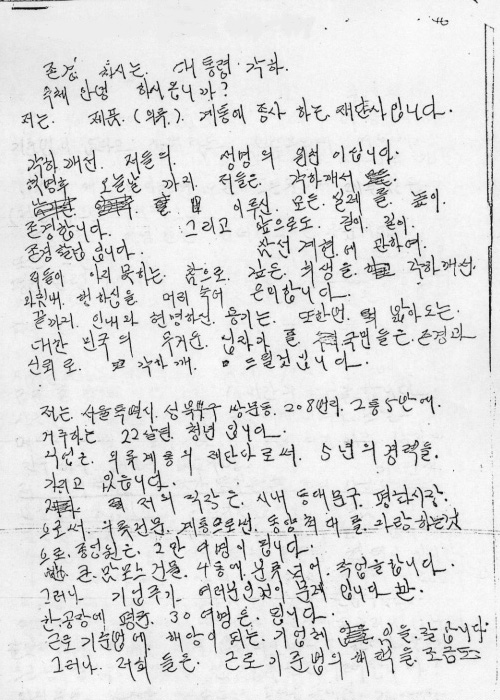 존경 하시는. 대통령 각하.
옥체 안녕 하시옵니까?
저는. 제품. (의류). 계통에 종사 하는. 재단사입니다.
각하께선. 저들의. 생명의 원선 이십니다.
혁명후 오늘날 까지 저들은. 각하께서
이루신. 모든. 일에 를. 높이.
존경합니다. 그리고 앞으로도. 길이 길이.
존경할겁니다. 삼선 개헌.에 관하여.
저들이 아지 못하는. 참으로. 깊은. 희생을. 각하께선.
마침내. 행하심을. 머리 숙여 은미합니다.
끝까지. 인내와 현명하신. 용기는. 또한번. 밝아오는.
대한 민국의 무거운. 십자가 를. 국민들은. 존경과
신뢰로. 각하께. 드릴것입니다.
저는. 서울특별시. 성북구 쌍문동. 208번지. 2통 5반에.
거주하는 22살된 청년입니다.
직업은. 의류계통의 재단사로써. 5년의 경력을.
가지고 있읍니다.
저의 직장은. 시내 동대문구. 평화시장.
으로써 의류전문. 계통으로썬. 동양 최대를. 자랑하는것
으로 종업원은. 2만 여명이 됩니다.
큰. 맘모스 건물. 4동에 분류되어. 작업을합니다.
그러나 기업주가 여러분인것이 문제 입니다만.
한공장에 평균. 30여명은. 됩니다.
근로기준법에. 해당이 되는. 기업체 임을. 잘 압니다.
그러나. 저희 들은. 근로기준법의 혜택을. 조금도